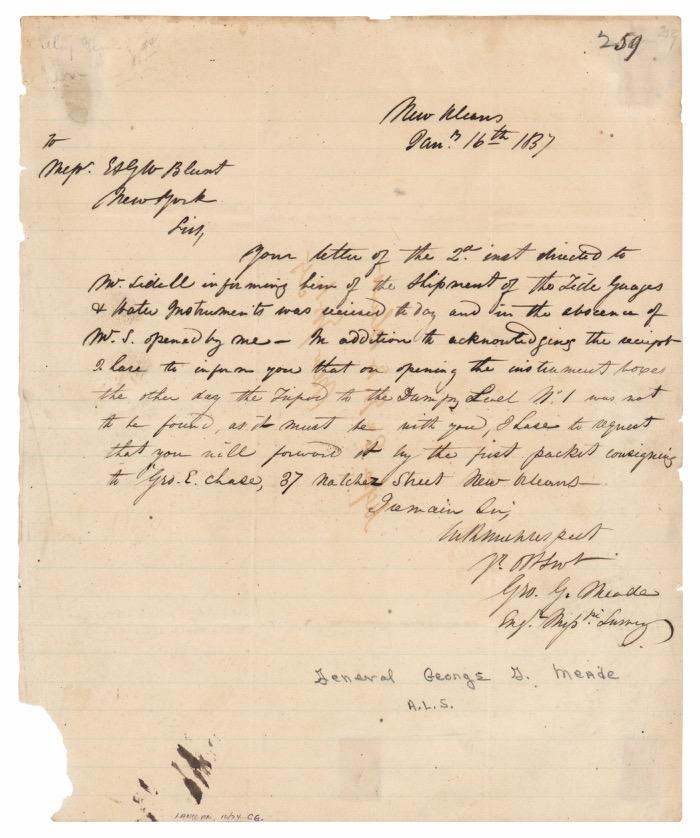 259
New Orleans
Jany. 16th 1837
To
Messrs. E & G W Blunt
New York
Sirs,
Your letter of the 2d. inst directed to
Mr. Sidell informing him of the shipment of the Tide Guages
& Water Instruments was recieved to day and in the abscence of
Mr. S. opened by me — In addition to acknowledging the receipt
I have to inform you that on opening the instrument boxes
the other day the Tripod to the Dumpy Level No. 1 was not
to be found, as it must be with you, I have to request
that you will forward it by the first packet consigning
to Geo. E. Chase, 37 Natchez Street New Orleans—
I remain Sirs,
With much respect
Yr. Obt Svt
Geo. G. Meade
Engr. Missppi. Survey
General George G. Meade
A.L.S.